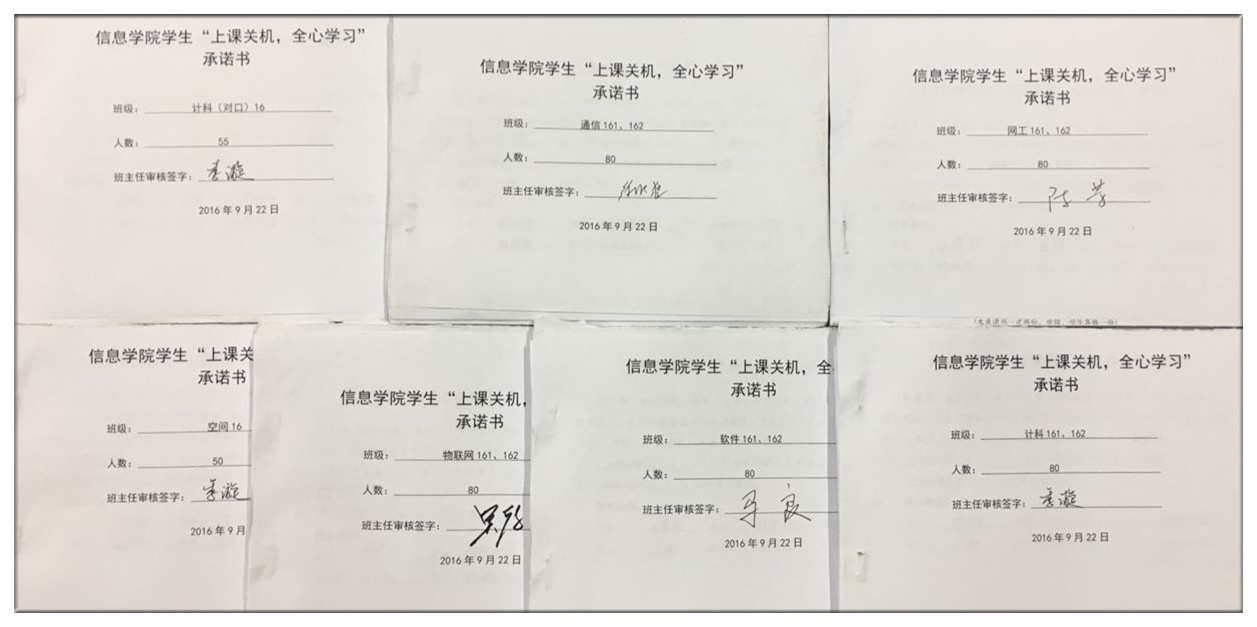 信息学院学生“上课关机，全心学习”
承诺书
班级： 计科（对口）16
人数： 55
班主任审核签字： 李璇
2016 年 9 月 22 日
信息学院学生“上课关机，全心学习”
承诺书
班级： 通信 161、162
人数： 80
班主任审核签字：
2016 年 9 月 22 日
信息学院学生“上课关机，全心学习”
承诺书
班级： 网工 161、162
人数： 80
班主任审核签字： 陈芳
2016 年 9 月 22 日
信息学院学生“上课关
承诺书
班级： 空间 16
人数： 50
班主任审核签字： 李璇
2016 年 9 月
信息学院学生“上课关机，
承诺书
班级： 物联网 161、162
人数： 80
班主任审核签字：
2016 年 9 月 22 日
信息学院学生“上课关机，全
承诺书
班级： 软件 161、162
人数： 80
班主任审核签字：
2016 年 9 月 22 日
信息学院学生“上课关机，全心学习”
承诺书
班级： 计科 161、162
人数： 80
班主任审核签字： 李璇
2016 年 9 月 22 日